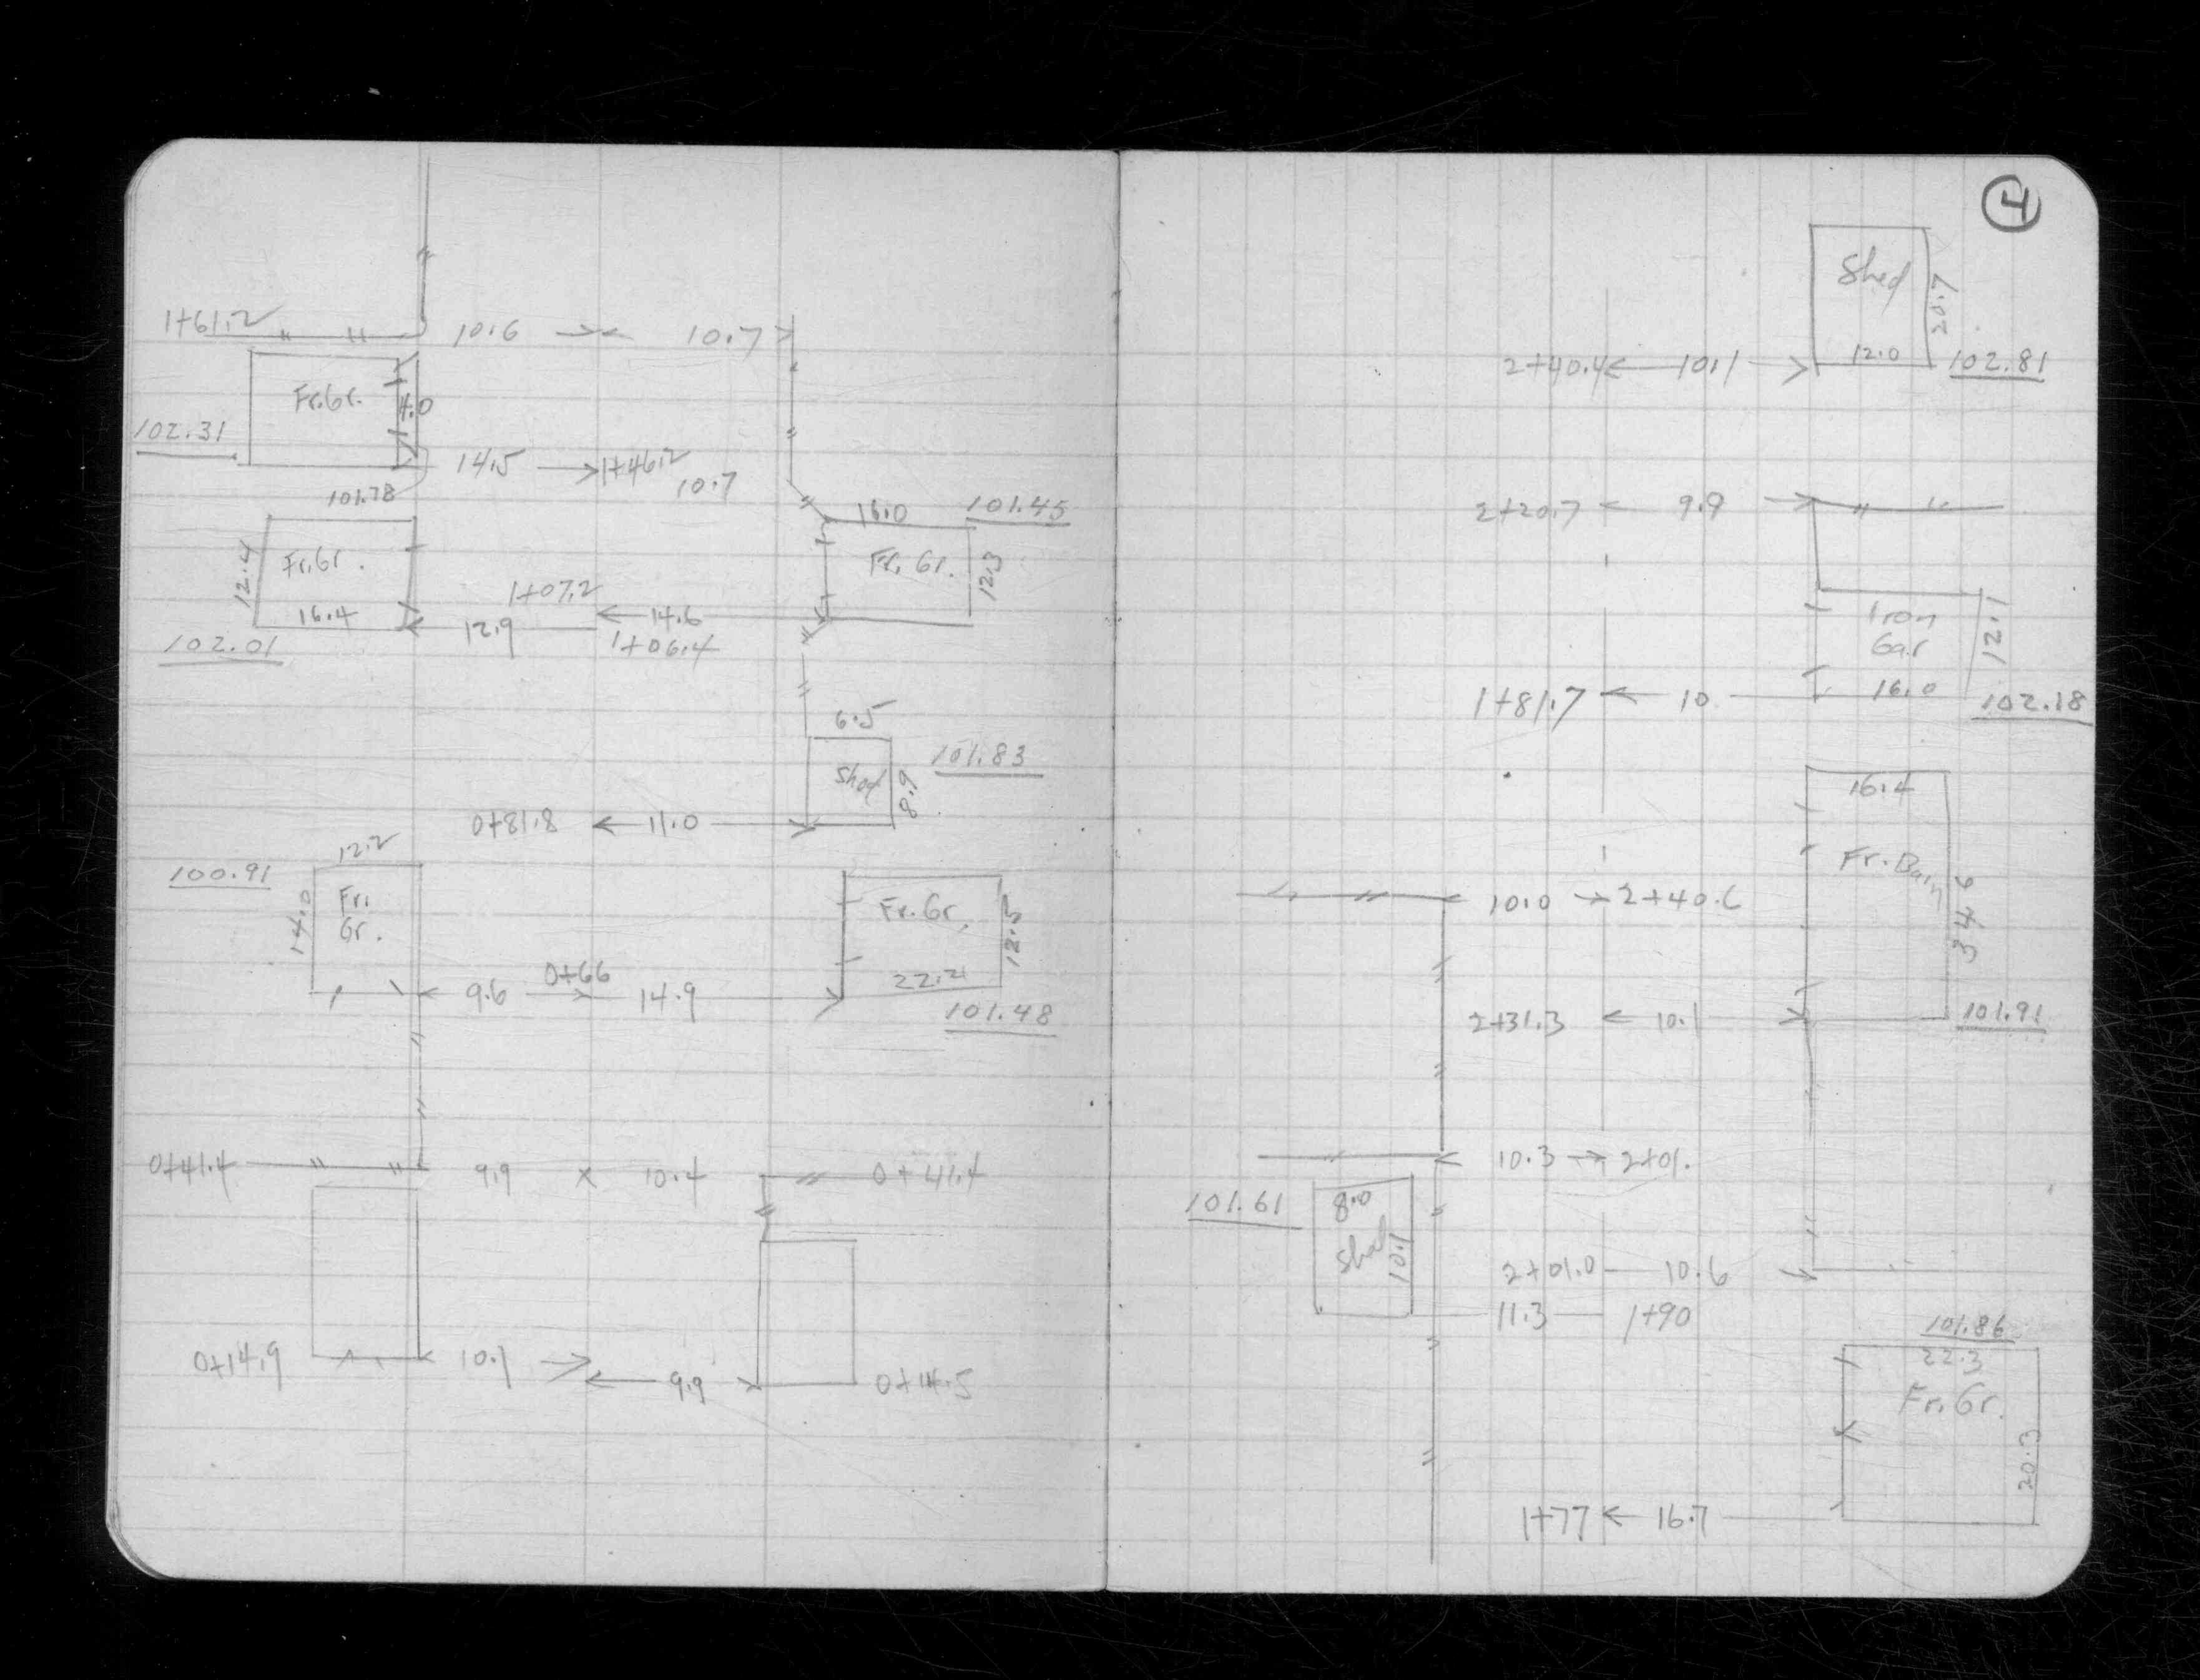 1+61.2 10.6 10.7
Fr.Gr.
102.31
14.5 1+46.2
10.7
101.78
16.0 101.45
12.4 Fr.Gr.
Fr. Gr. 12.3
1+07.2
16.4 12.9 14.6
102.01 1+06.4
6.5
101.83
Shed 8.9
0+81.8 11.0
12.2
100.91
14.0 Fr.
Gr.
Fr. Gr.
9.6 0+66 14.9
101.48
0+41.4 9.9 x 10.4 0+41.4
0+14.9 10.1
9.9 0+14.5
4
Shed 20.7
2+40.4 10.1 12.0 102.81
2+20.7 9.9
Iron
Gar 12.1
1+81.7 10 16.0 102.18
16.4
Fr. Barn 34.6
10.0 2+40.6
2+31.3 10.1 101.91
10.3 2+01.
101.61 8.0
Shed 10.1
2+01.0 10.6
11.3 1+90
101.86
22.3
Fr. Gr.
20.3
1+77 16.7